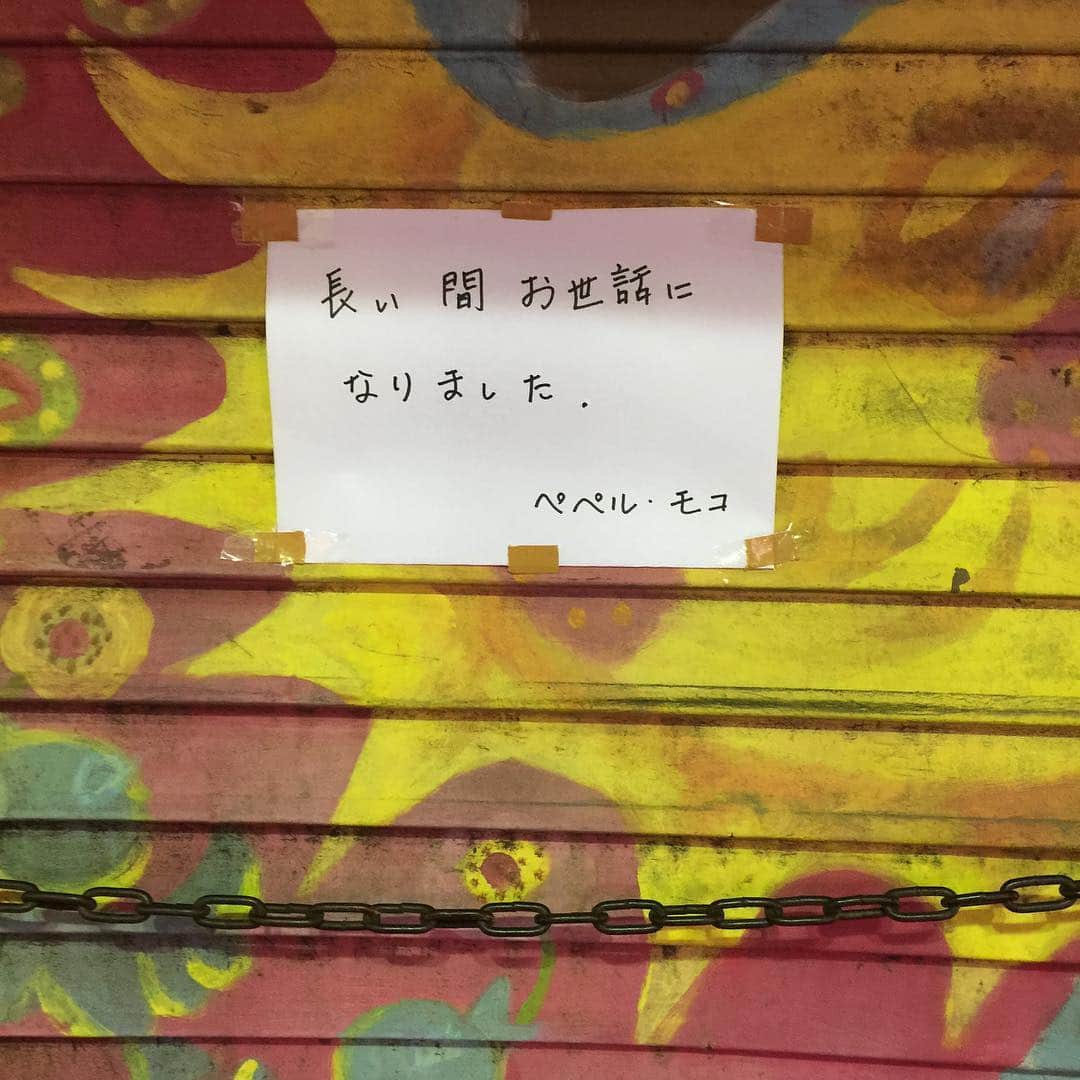 長い間 お世話に
なりました.
ペペル・モコ